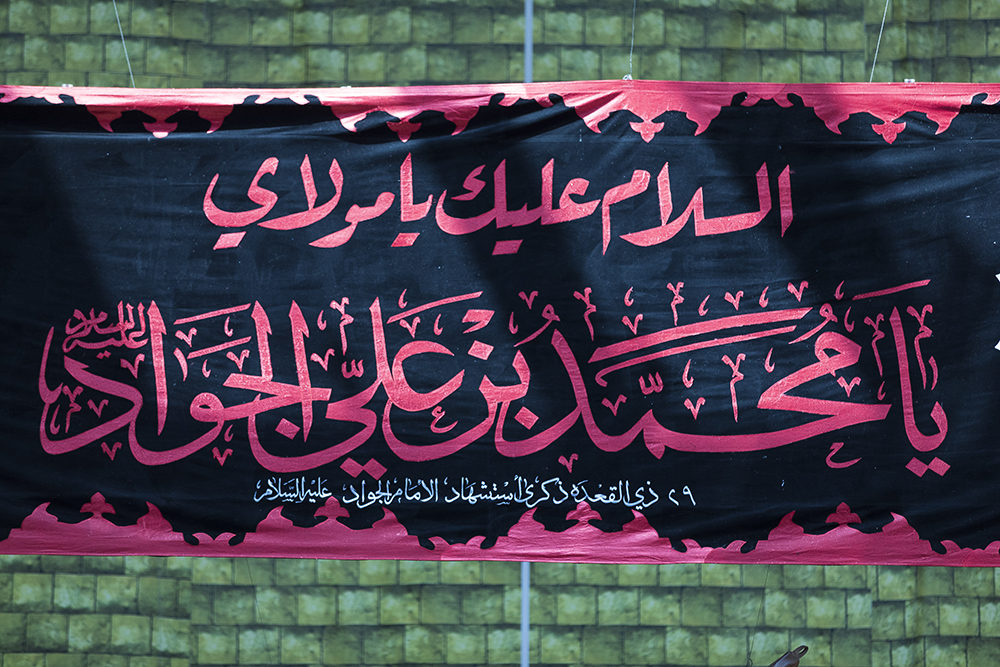 السلام عليك يا مولاي
يا محمد بن علي الجواد عليه السلام
٢٩ ذي القعدة ذكرى أستشهاد الامام الجواد عليه السلام